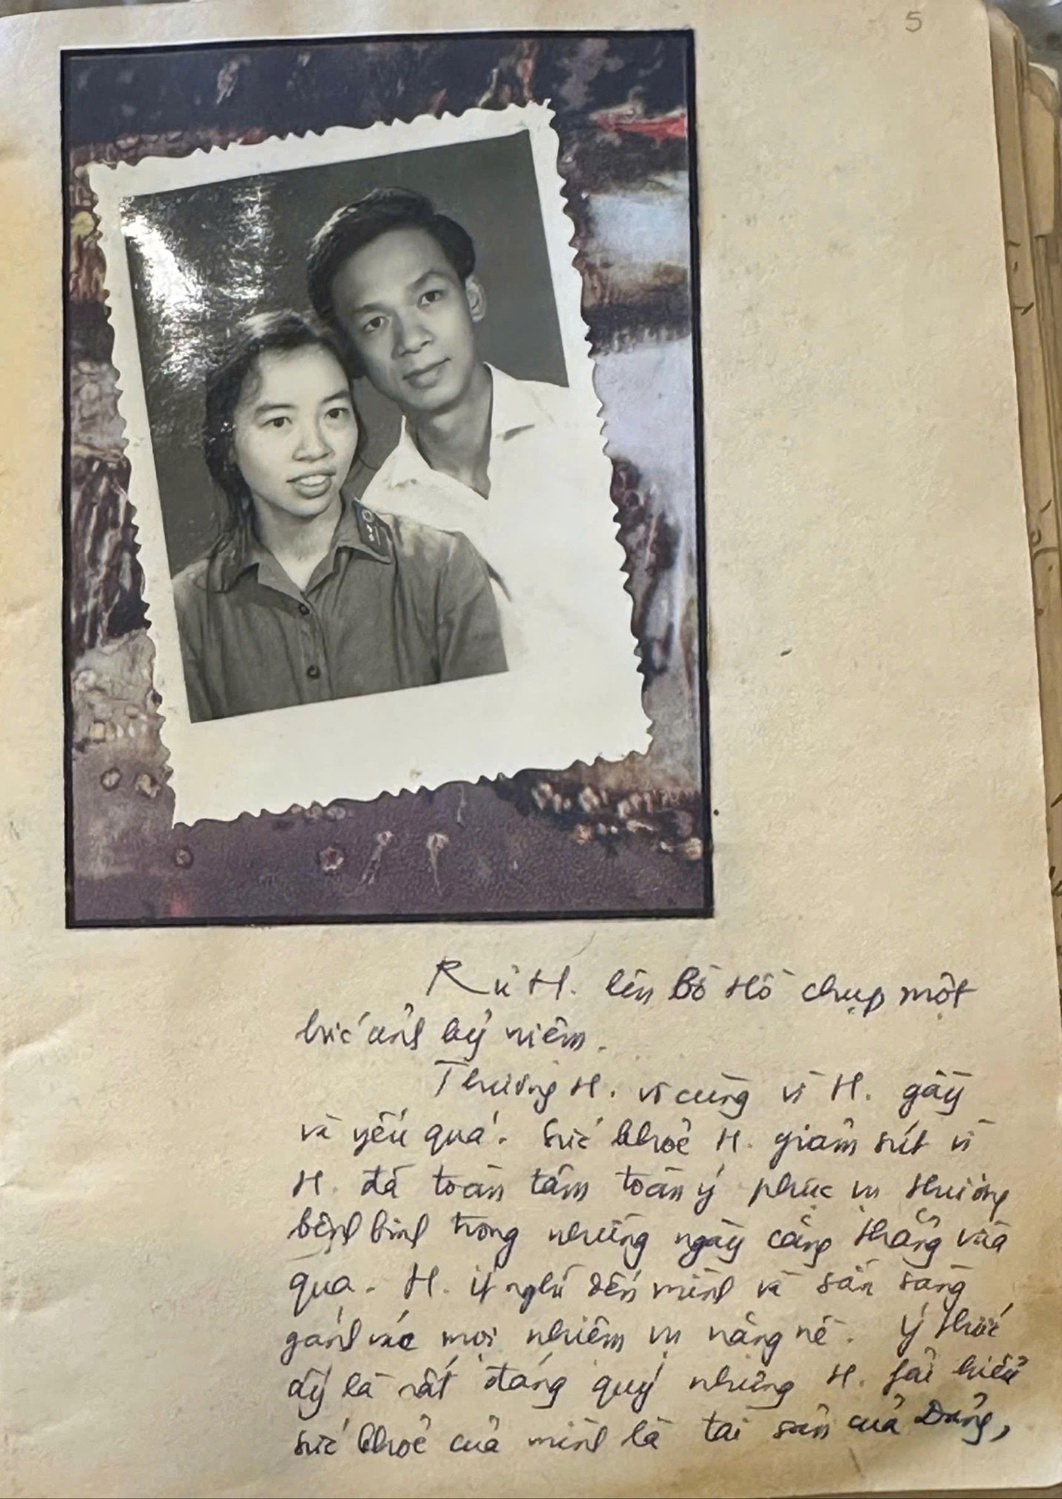 5
Rủ H. lên Bờ Hồ chụp một
bức ảnh kỷ niệm.
Thương H. vô cùng vì H. gầy
và yếu quá. Sức khoẻ H. giảm sút vì
H. đã toàn tâm toàn ý phục vụ thương
bệnh binh trong những ngày căng thẳng vừa
qua. H. ít nghĩ đến mình và sẵn sàng
gánh vác mọi nhiệm vụ nặng nề. Ý thức
ấy là rất đáng quý nhưng H. fải hiểu
sức khoẻ của mình là tài sản của Đảng,